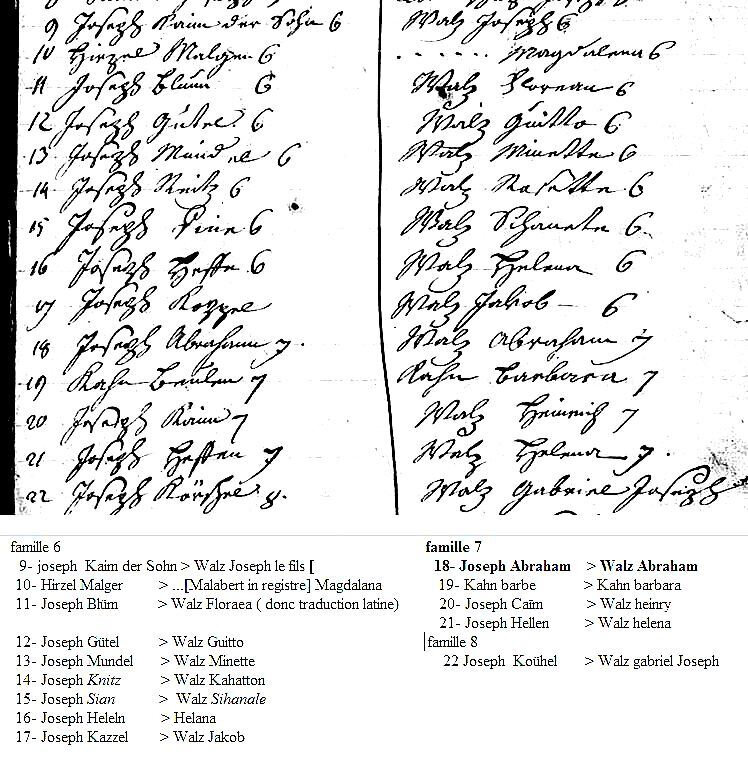 9 Joseph Kaim der Sohn 6 Walz Joseph 6
10 Hirzel Malgen 6 . . . . . . Magdalena 6
11 Joseph Blüm 6 Walz Florean 6
12 Joseph Gütel 6 Walz Guitto 6
13 Joseph Mündel 6 Walz Minette 6
14 Joseph Reitz 6 Walz Rosette 6
15 Joseph 6 Walz Schanete 6
16 Joseph Heffe 6 Walz Helena 6
17 Joseph Koppel Walz Jakob 6
18 Joseph Abraham 7. Walz Abraham 7
19 Kahn 7 Kahn Barbara 7
20 Joseph Kaim 7 Walz Heinrich 7
21 Joseph Heffen 7 Walz Helena 7.
22 Joseph 8. Walz Gabriel Joseph
famille 6
9- joseph Kaim der Sohn > Walz Joseph le fils [
10- Hirzel Malger > ...[Malabert in registre] Magdalana
11- Joseph Blüm > Walz Floraea ( donc traduction latine)
12- Joseph Gütel > Walz Guitto
13- Joseph Mundel > Walz Minette
14- Joseph Knitz > Walz Kahatton
15- Joseph Sian > Walz Sihanale
16- Joseph Heleln > Helana
17- Joseph Kazzel > Walz Jakob
famille 7
18- Joseph Abraham > Walz Abraham
19- Kahn barbe > Kahn barbara
20- Joseph Caïm > Walz heinry
21- Joseph Hellen > Walz helena
famille 8
22 Joseph Koühel > Walz gabriel Joseph